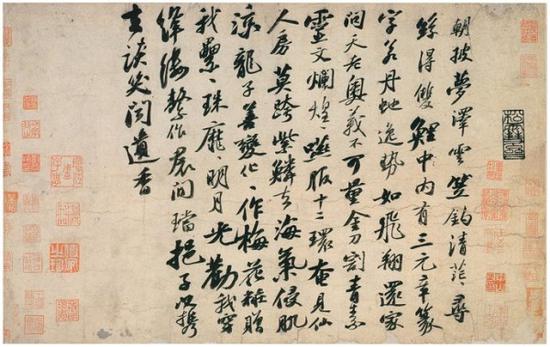 朝披夢澤雲笠釣清茫〻尋
絲得雙鯉中内有三元章篆
字若丹虵逸勢如飛翔還家
問天老奧義不可量金刀割青素
靈文爛煌〻嚥服十二環奄見仙
人房莫跨紫鱗去海氣侵肌
涼龍子善變化〻作梅花粧贈
我纍〻珠靡〻明月光勸我穿
絳縷繫作裙間璫挹子以攜
去談笑聞遺香